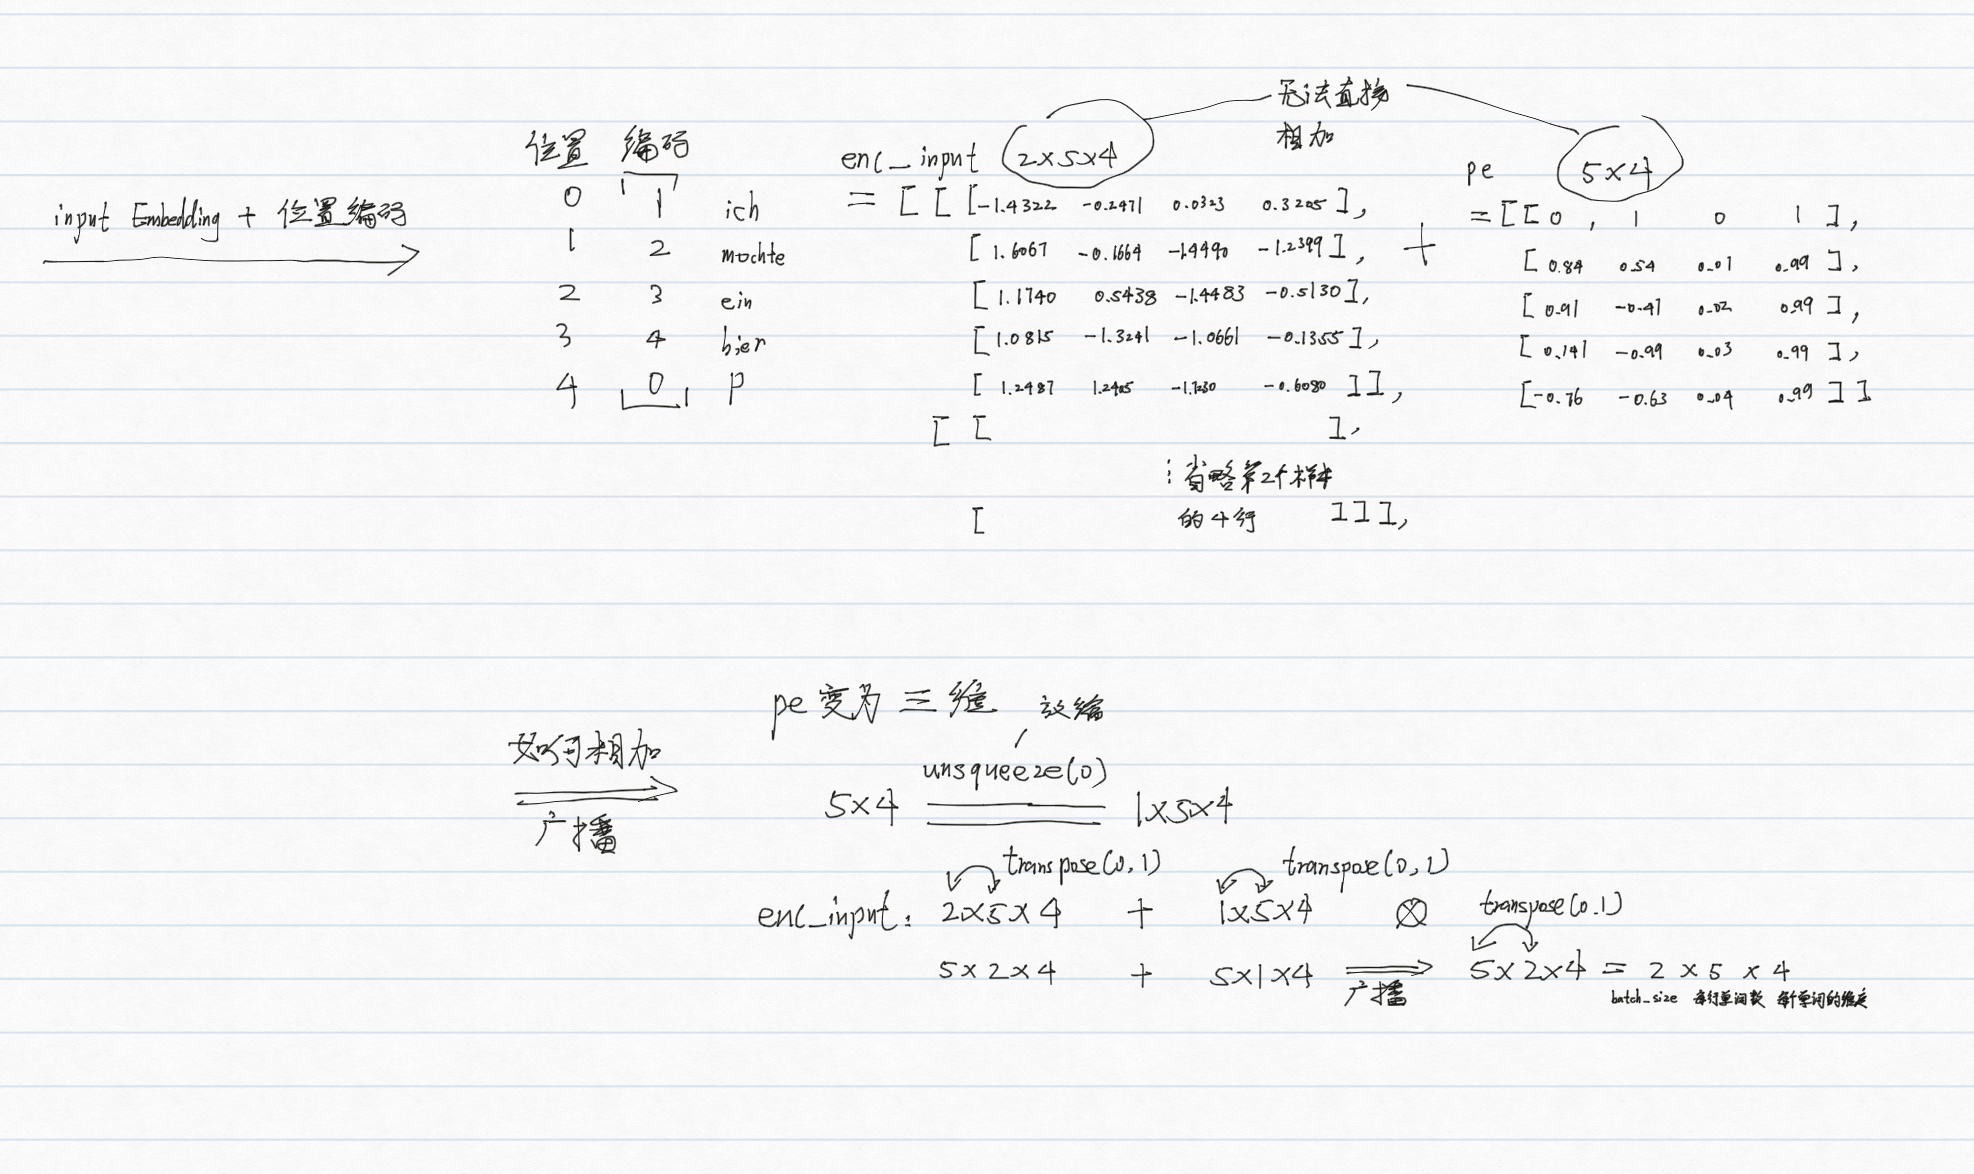 input Embedding + 位置编码
位置 编码
0 1 ich
1 2 mochte
2 3 ein
3 4 bier
4 0 P
无法直接
相加
enc_input 2×5×4
= [ [ [-1.4322 -0.2471 0.0323 0.3205],
[ 1.6067 -0.1664 -1.4490 -1.2399],
[ 1.1740 0.5438 -1.4483 -0.5130],
[1.0815 -1.3241 -1.0661 -0.1355],
[ 1.2487 1.2405 -1.7230 -0.6080 ]],
[ [ ],
⋮省略第2个样本
[ 的4行 ]]],
+
pe 5×4
=[[ 0 , 1 0 1 ],
[ 0.84 0.54 0.01 0.99 ],
[ 0.91 -0.41 0.02 0.99 ],
[ 0.141 -0.99 0.03 0.99 ],
[-0.76 -0.63 0.04 0.99 ]]
如何相加
广播
pe变为三维
unsqueeze(0)
5×4 1×5×4
transpose(0,1) transpose(0,1)
enc_input: 2×5×4 + 1×5×4 ⊗ transpose(0.1)
5×2×4 + 5×1×4 广播 5×2×4 = 2 × 5 × 4
batch_size 每行单词数 每个单词的维度